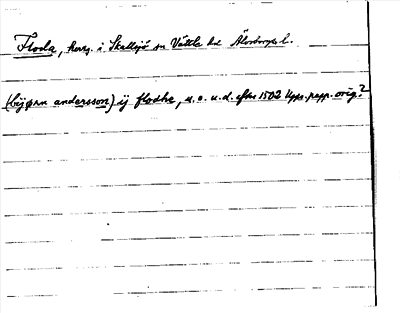 Floda, herrg. i Skallsjö sn Vättle hd Älvsborgs l.
(bijørn andersson) ij flodha, u.o. u.d. efter 1502 Upps. papp. orig.?